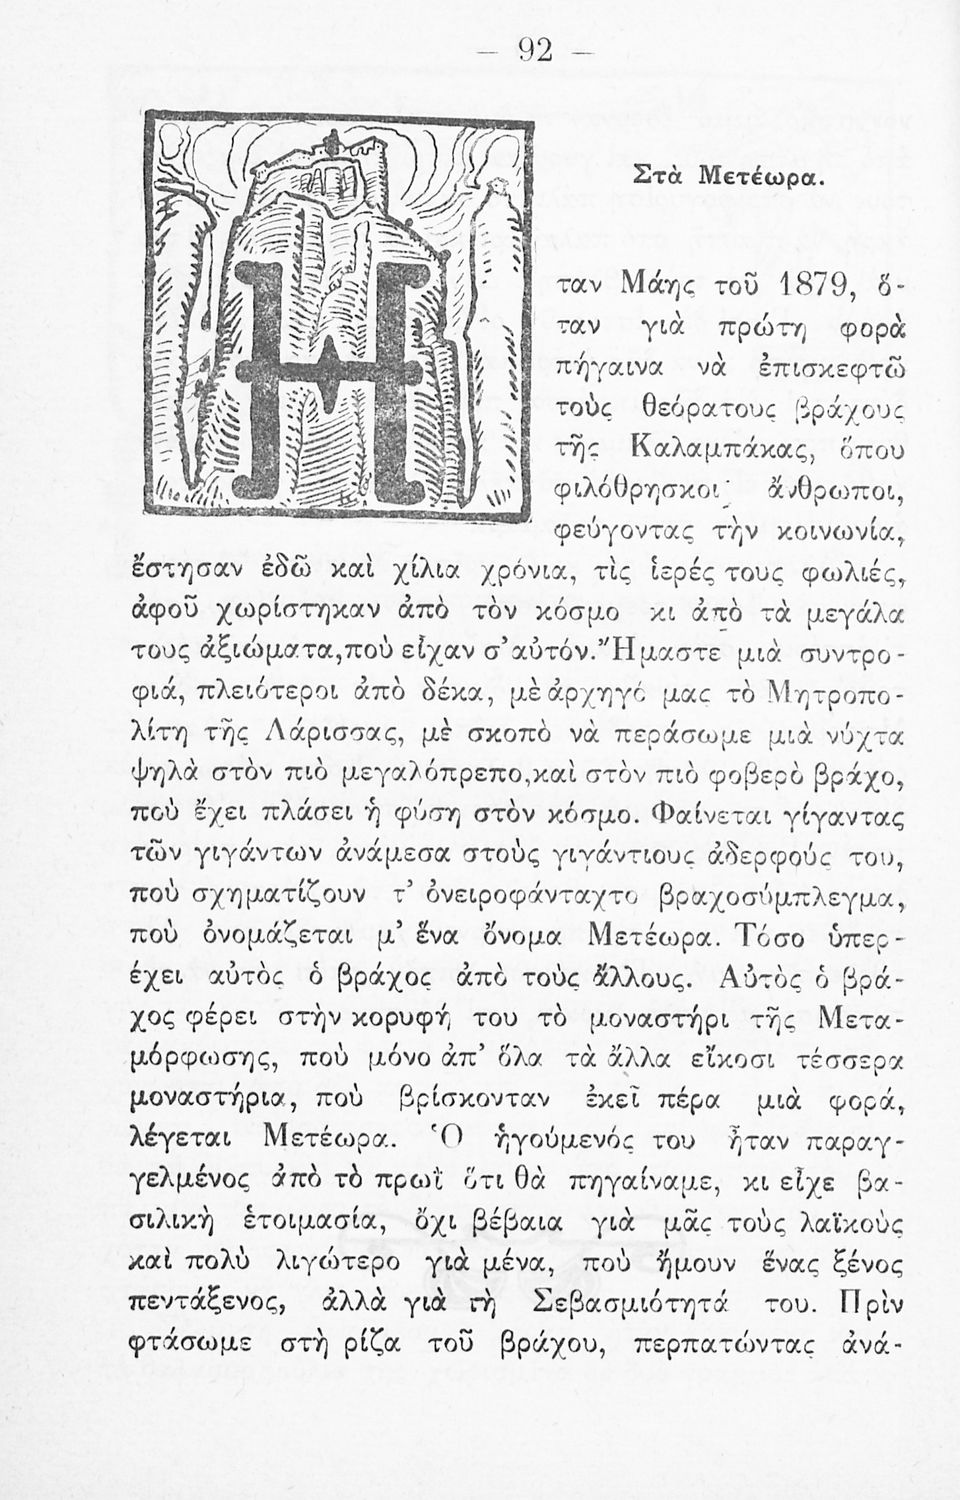 — 92 —
Στὰ Μετέωρα.
Η
ταν Μάης τοῦ 1879, ὅ-
ταν γιὰ πρώτη φορὰ
πήγαινα νὰ ἐπισκεφτῶ
τοὺς θεόρατους βράχους
τῆς Καλαμπάκας, ὅπου
φιλόθρησκοι ἄνθρωποι,
φεύγοντας τὴν κοινωνία,
ἔστησαν ἐδῶ καὶ χίλια χρόνια, τὶς ἱερές τους φωλιές,
ἀφοῦ χωρίστηκαν ἀπὸ τὸν κόσμο κι ἀπὸ τὰ μεγάλα
τους ἀξιώματα,ποὺ εἶχαν σ’ αὐτόν. Ἤμαστε μιὰ συντρο-
φιά, πλειότεροι ἀπὸ δέκα, μὲ ἀρχηγό μας τὸ Μητροπο-
λίτη τῆς Λάρισσας, μὲ σκοπὸ νὰ περάσωμε μιὰ νύχτα
ψηλὰ στὸν πιὸ μεγαλόπρεπο,καὶ στὸν πιὸ φοβερὸ βράχο,
ποὺ ἔχει πλάσει ἡ φύση στὸν κόσμο. Φαίνεται γίγαντας
τῶν γιγάντων ἀνάμεσα στοὺς γιγάντιους ἀδερφούς του,
ποὺ σχηματίζουν τ’ ὀνειροφάνταχτο βραχοσύμπλεγμα,
ποὺ ὀνομάζεται μ’ ἕνα ὄνομα Μετέωρα. Τόσο ὑπερ-
έχει αὐτὸς ὁ βράχος ἀπὸ τοὺς ἄλλους. Αὐτὸς ὁ βρά-
χος φέρει στὴν κορυφή του τὸ μοναστήρι τῆς Μετα-
μόρφωσης, ποὺ μόνο ἀπ’ ὅλα τὰ ἄλλα εἴκοσι τέσσερα
μοναστήρια, ποὺ βρίσκονταν ἐκεῖ πέρα μιὰ φορά,
λέγεται Μετέωρα. Ὁ ἡγούμενός του ἦταν παραγ-
γελμένος ἀπὸ τὸ πρωῒ ὅτι θὰ πηγαίναμε, κι εἶχε βα-
σιλικὴ ἑτοιμασία, ὄχι βέβαια γιὰ μᾶς τοὺς λαϊκοὺς
καὶ πολὺ λιγώτερο γιὰ μένα, ποὺ ἤμουν ἕνας ξένος
πεντάξενος, ἀλλὰ γιὰ τὴ Σεβασμιότητά του. Πρὶν
φτάσωμε στὴ ρίζα τοῦ βράχου, περπατώντας ἀνά-